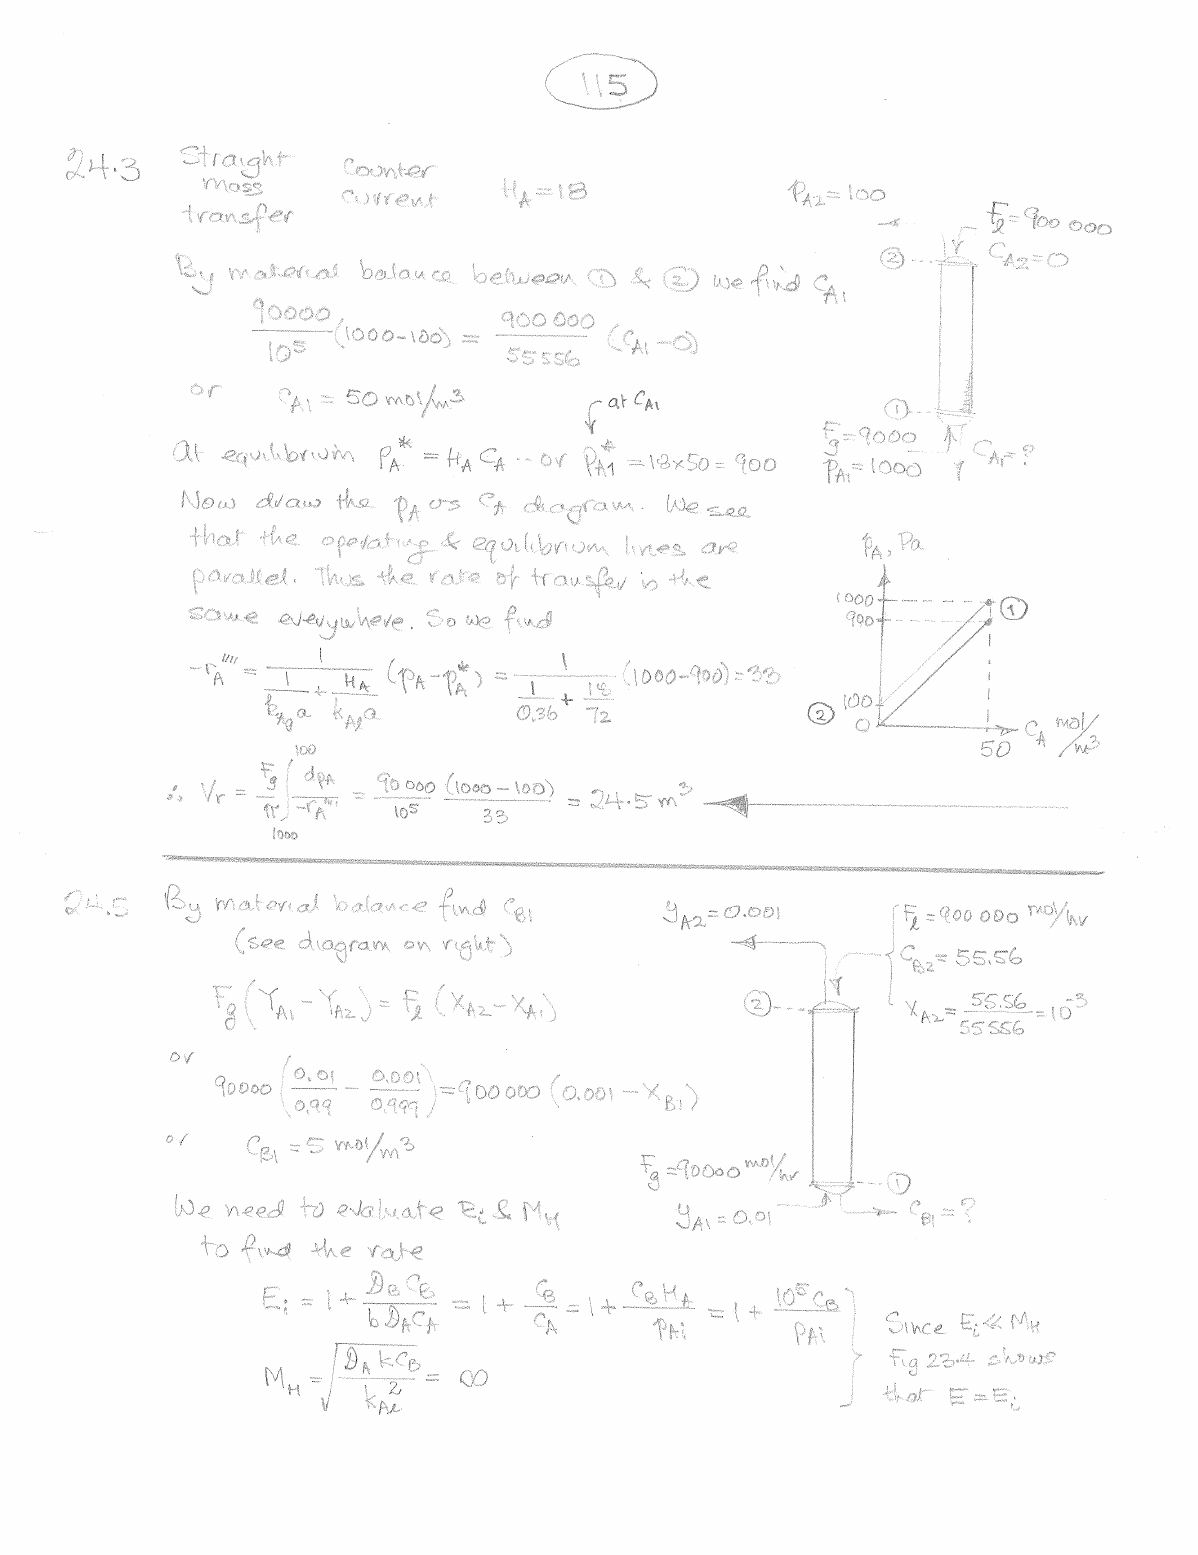 115
24.3 Straight mass transfer
Counter current
H_A = 18
P_A2 = 100
F_l = 900 000
C_A2 = 0
②
By material balance between ① & ② we find C_A1
90000/10^5 (1000-100) = 900 000/55 556 (C_A1 - 0)
or C_A1 = 50 mol/m^3
at C_A1
①
F_g = 9000
P_A1 = 1000
C_A1 = ?
At equilibrium P_A* = H_A C_A ... or P_A1* = 18×50 = 900
Now draw the P_A vs C_A diagram. We see
that the operating & equilibrium lines are
parallel. Thus the rate of transfer is the
same everywhere. So we find
P_A, Pa
1000
900
100
0
①
②
50
C_A mol/m^3
-r_A'''' = 1/(1/(k_Ag a) + H_A/(k_Al a)) (P_A - P_A*) = 1/(1/0.36 + 18/72) (1000-900) = 33
∴ V_r = F_g/π ∫_1000^100 dp_A/(-r_A'''') = 90 000/10^5 (1000-100)/33 = 24.5 m^3
24.5 By material balance find C_B1
(see diagram on right)
y_A2 = 0.001
F_l = 900 000 mol/hr
C_B2 = 55.56
X_A2 = 55.56/55 556 = 10^-3
②
F_g (Y_A1 - Y_A2) = F_l (X_A2 - X_A1)
or
90000 (0.01/0.99 - 0.001/0.999) = 900 000 (0.001 - X_B1)
or C_B1 = 5 mol/m^3
F_g = 90000 mol/hr
y_A1 = 0.01
①
C_B1 = ?
We need to evaluate E_i & M_H
to find the rate
E_i = 1 + D_B C_B/(b D_A C_A) = 1 + C_B/C_A = 1 + C_B H_A/P_Ai = 1 + 10^5 C_B/P_Ai
M_H = √(D_A k C_B/k_Al^2) = ∞
Since E_i << M_H
Fig 23.4 shows
that E = E_i